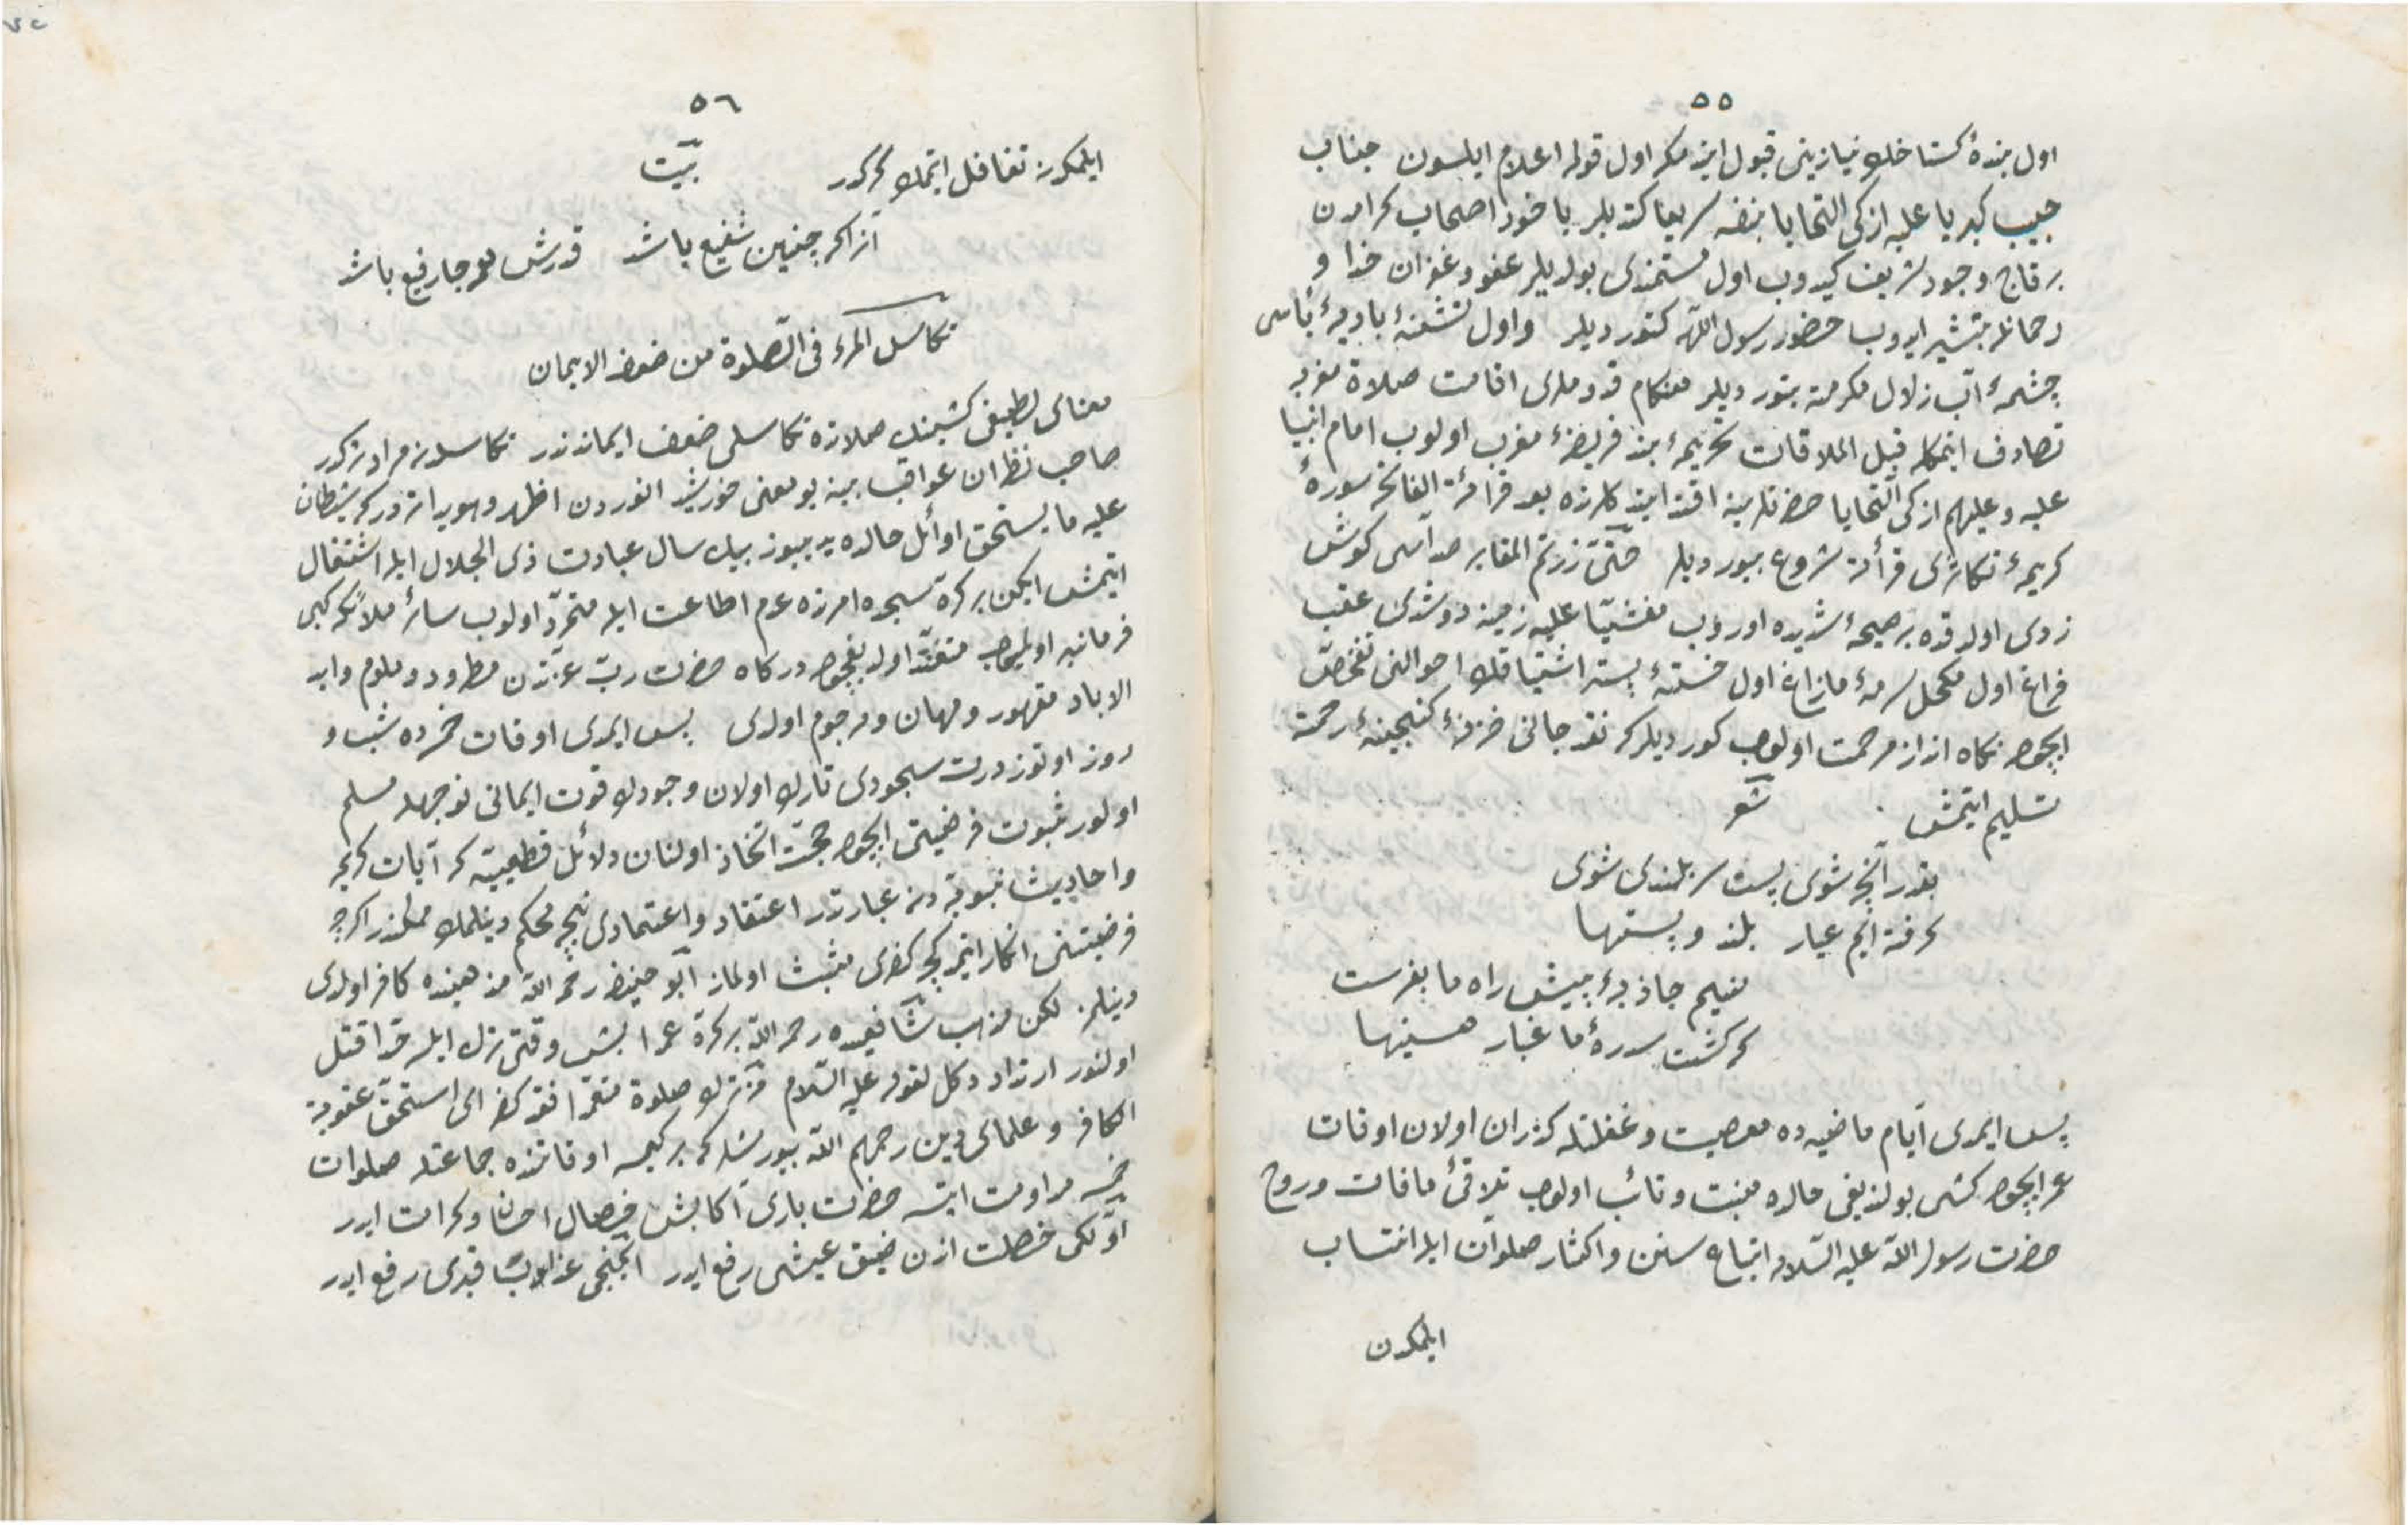 ٥٥
اول بندۀ كستاخك نيازينى قبول ايدمكه اول قوله اعلام ايلسون جناب
حبيب كبريا عليه ازكى التحايا بنفسه سريعا كتديلر يا خود اصحاب كرامدن
بر قاچ وجود شريف كيدوب اول مستمندى بولديلر عفو و غفران خدا و
رحمانله تبشير ايدوب حضور رسول اللّه كتورديلر واول تشنۀ باديۀ يأسى
چشمۀ آب زلال مكرمته يتورديلر هنكام قدوملرى اقامت صلاة مغربه
تصادف ايتمكله قبل الملاقات تحريمه بند فريضۀ مغرب اولوب امام انبيا
عليه وعليهم ازكى التحايا حضرتلرينه اقتدا ايتدكلرنده بعد قرائة الفاتحه سورۀ
كريمۀ تكاثرى قرأته شروع بيورديلر حتّى زرتم المقابر صداسى كوش
زدى اولدقده بر صيحۀ شديده اوروب مغشيّا عليه زمينه دوشدى عقب
فراغ اول مكحل سرمۀ مازاغ اول خستۀ بستر اشتياقك احوالنى تفحّص
ايچون نكاه انداز مرحمت اولوب كورديلر كه نقد جانى خزنۀ كنجينۀ رحمته
تسليم ايتمش شعر
بقدر آنچه شوى پست سربلندى شوى
كرفته ايم عيار بلند و پستيها
نسيم جاذبۀ پيش راه ما بفرست
كه كشت سدرۀ ما غبار هستيها
پس ايمدى ايّام ماضيه ده معصيت و غفلتله كذران اولان اوقات
عمر ايچون كشى بولنديغى حالده منيب و تائب اولوب تلاقئ مافات و روح
حضرت رسول اللّه عليه السّلامه اتباع سنن و اكثار صلوات ايله انتساب
ايلمكدن
٥٦
ايلمكدن تغافل ايتمك كركدر بيت
آنرا كه چنين شفيع باشد قدرش همه جا رفيع باشد
تكاسل المرء فى الصّلوة من ضعف الايمان
معناى لطيفى كشينك صلاتده تكاسلى ضعف ايمانندندر تكاسلدن مراد تركدر
صاحب نظران عواقب بينه بو معنى خورشيد انوردن اظهر و هويدا تردر كه شيطان
عليه ما يستحق اوائل حالده يديوز بيك سال عبادت ذى الجلال ايله اشتغال
ايتمش ايكن بر كره سجده امرنده عدم اطاعت ايله متمرّد اولوب سائر ملائكه كبى
فرمانبر اولميوب متعنّد اولديغيچون دركاه حضرت ربّ عزّتدن مطرود و ملوم وابد
الاباد مقهور ومهان ومرجوم اولدى پس ايمدى اوقات خمسه ده شب و
روز اوتوز درت سجودى تارك اولان وجودك قوت ايمانى نوجهله مسلم
اولور ثبوت فرضيتى ايچون حجّت اتخاذ اولنان دلائل قطعيه كه آيات كريمه
واحاديث نبويه دن عبارتدر اعتقاد واعتمادى نيجه محكم دينلمك ممكندر اكرچه
فرضيتنى انكار ايتمدكجه كفرى مثبت اولماز ابو حنيفه رحمه اللّه مذهبنده كافر اولدى
دينلمز لكن مذهب شافعيده رحمه اللّه بر كرّه عمدا بش وقتى ترك ايله حدّا قتل
اولنور ارتداد دكل لقوله عليه السّلام من ترك صلوة متعمّدا فقد كفر اى استحق عقوبة
الكافر و علماى دين رحمهم اللّه بيورمشلر كه بر كيمسه اوقاتنده جماعتله صلوات
خمسه مداومت ايتسه حضرت بارى آكا بش خصال احسان و كرامت ايدر
اوّلكى خصلت اندن ضيق عيشى رفع ايدر ايكنجى عذاب قبرى رفع ايدر